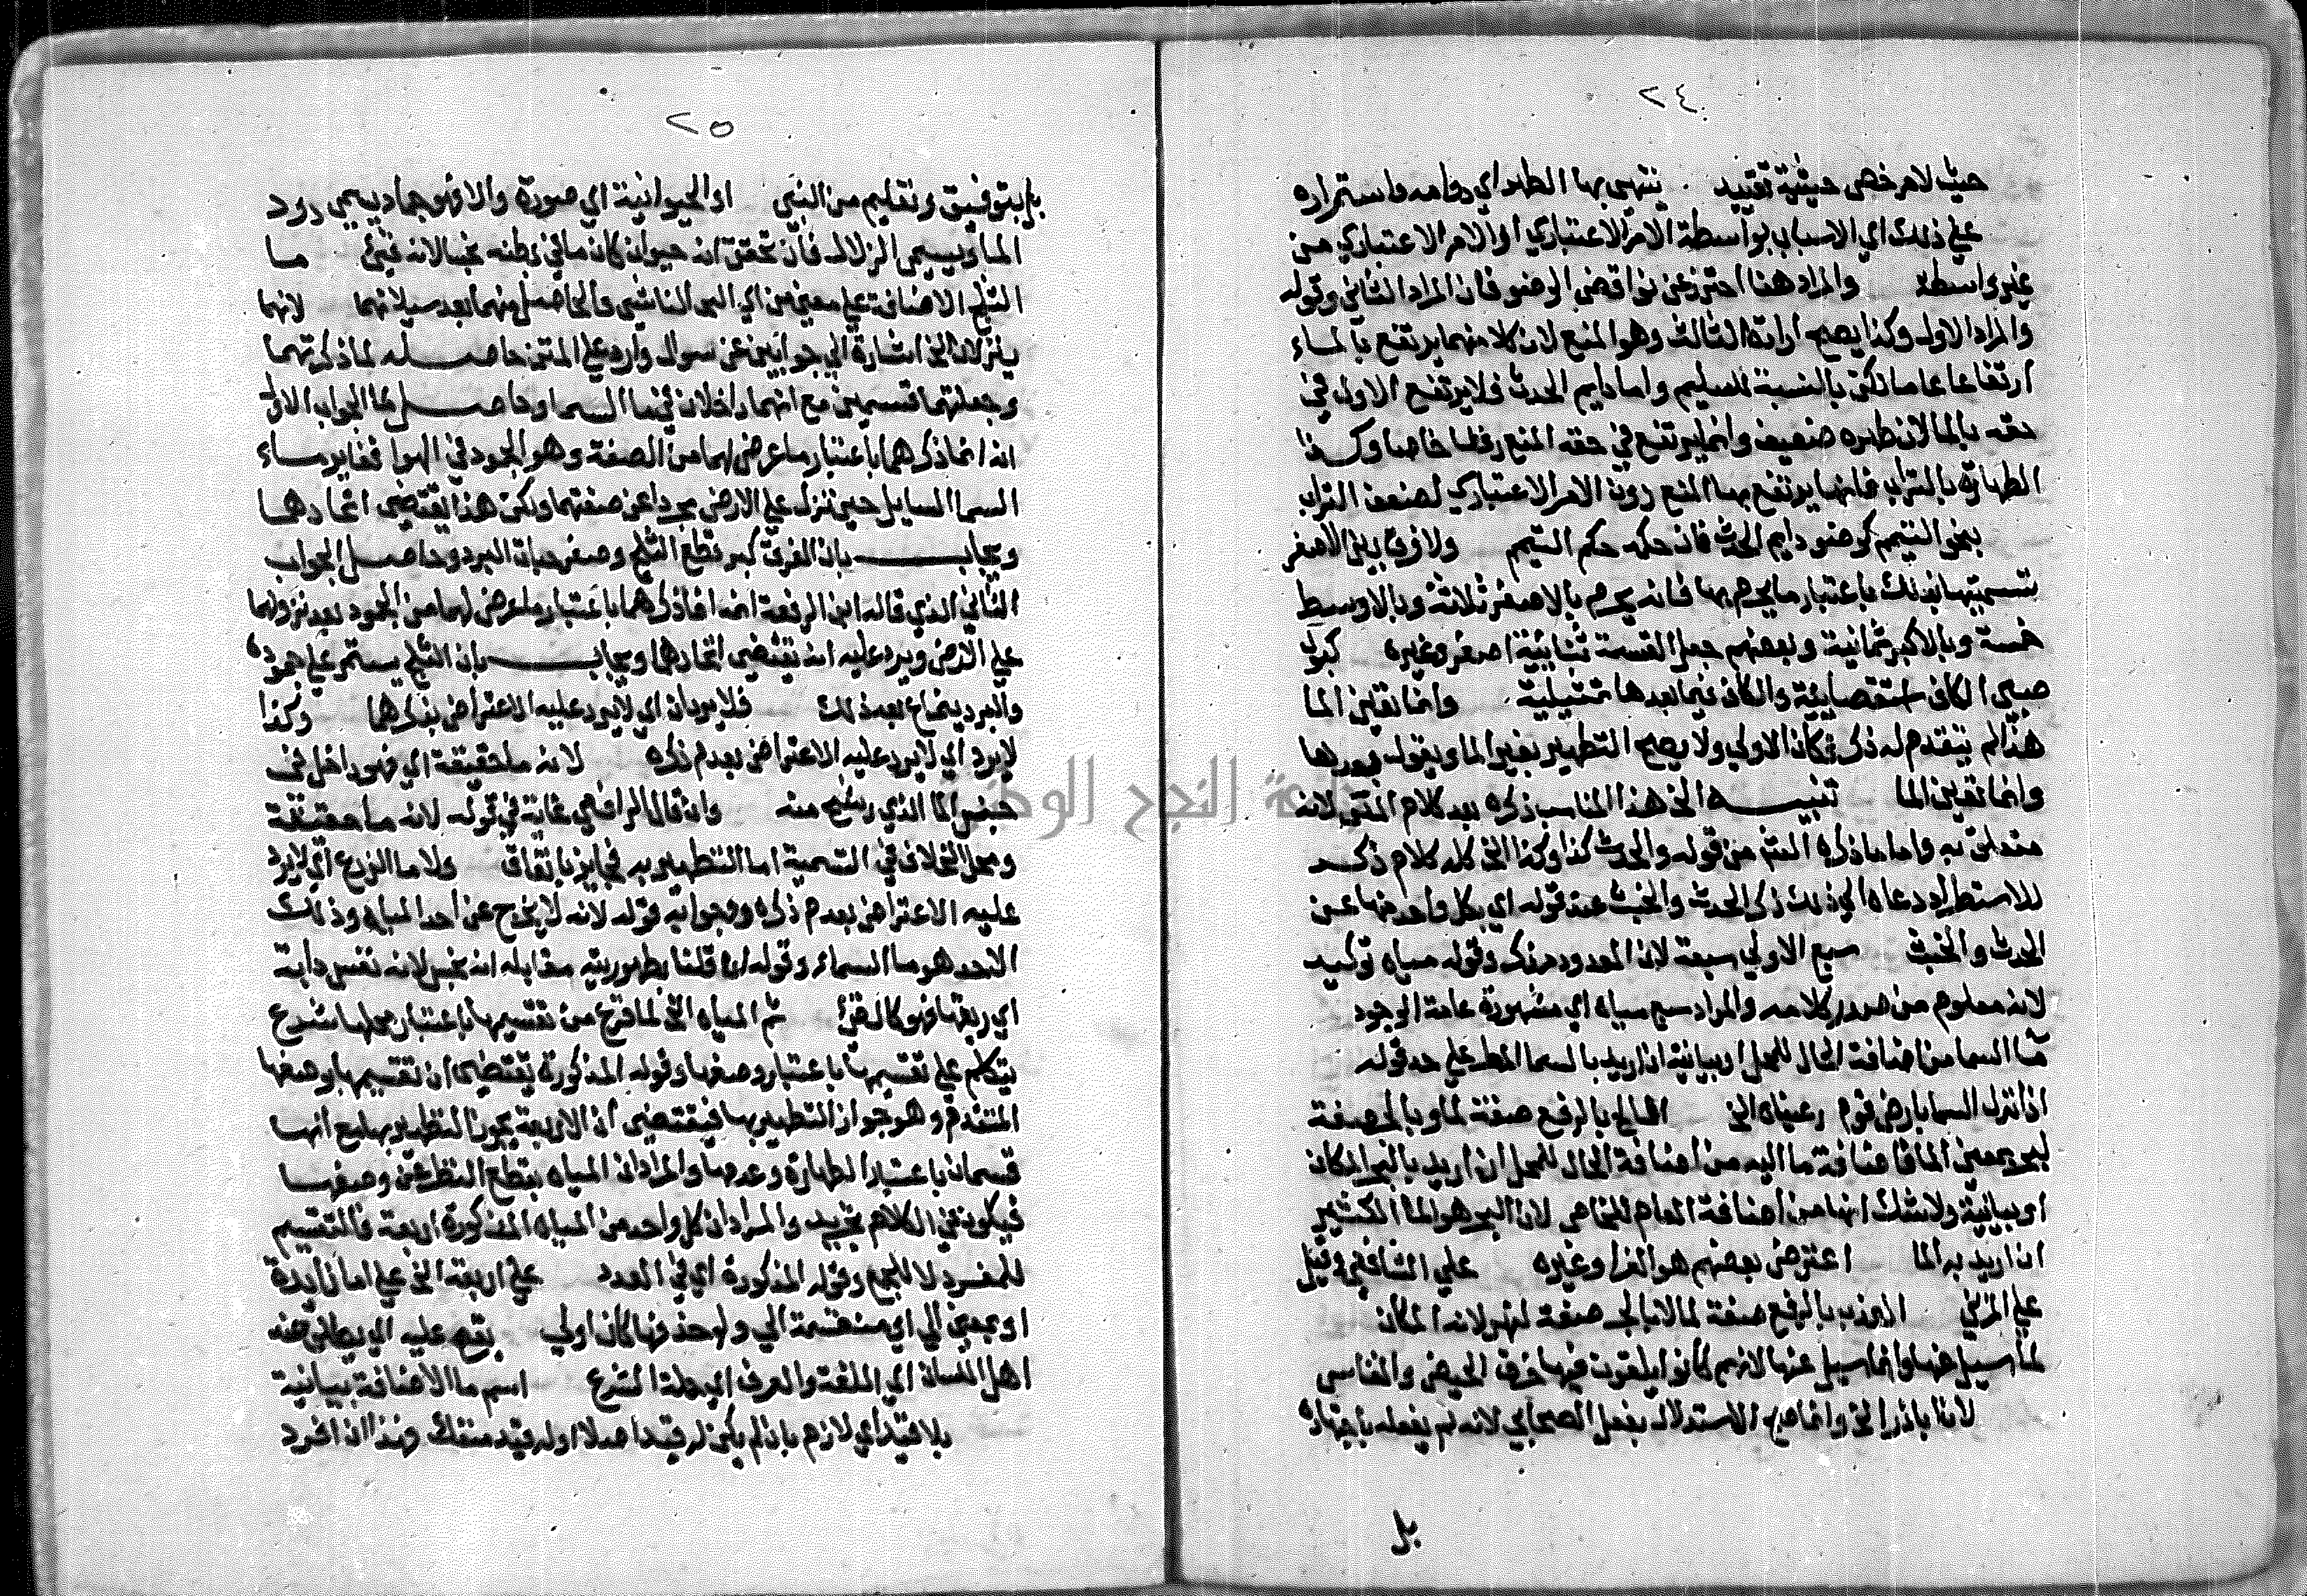 ٢٤
حيث لا مرخص حيثية تقييد ينتهي بها الطهر اي دوامه واستمراره
على ذلك اي الاسباب بواسطة الامر الاعتباري او الامر الاعتباري من
غير واسطة والمراد هنا احترز عن نواقض الوضو فان المراد الثاني وقوله
والمراد الاول وكذا يصح ارادة الثالث وهو المنع لان كلا منهما يرتفع بالماء
ارتفاعا عاما لكن بالنسبة للسليم واما دايم الحدث فلا يرتفع الاول في
حقه بالما لان طهره ضعيف وانما يرتفع في حقه المنع رفعا خاصا وكذا
الطهارة بالتراب فانها يرتفع بها المنع دون الامر الاعتباري لضعف التراب
بنحو التيمم كوضو دايم الحدث فان حكمه حكم التيمم ولا فرق بين الاصغر
تسميتها بذلك باعتبار ما يحرم بها فانه يحرم بالاصغر ثلاثة وبالاوسط
خمسة وبالاكبر ثمانية وبعضهم جعل القسمة ثنايية اصغر وغيره كبول
صبي الكاف استقصايية والكاف فيما بعدها تمثيلية وانما تعين الما
هذا لم يتقدم له ذكر فكان الاولى ولا يصح التطهير بغير الما ويقول بعدها
وانما تعين الما تنبيه الخ هذا المناسب ذكره بعد كلام المتن لانه
متعلق به واما ما ذكره المتن من قوله والحدث كذا وكذا الخ كله كلام ذكر
للاستطراد دعاه الى ذلك ذكر الحدث والخبث عند قوله اي بكل واحد منها عن
الحدث والخبث سبع الاولى سبعة لان المعدود مذكر وقوله مياه توكيد
لانه معلوم من صدر كلامه والمراد سبع مياه اي مشهورة عامة الوجود
ما السما من اضافة الحال للمحل او بيانية ان اريد بالسما المطر على حد قوله
اذا نزل السما بارض قوم رعيناه الخ المالح بالرفع صفة لما وبالجر صفة
لبحر بمعنى الما فاضافة ما اليه من اضافة الحال للمحل ان اريد بالبحر المكان
او بيانية ولا شك انها من اضافة العام للخاص لان البحر هو الما الكثير
ان اريد به الما اعترض بعضهم هو الفرا وغيره على الشافعي وقيل
على المزني العذب بالرفع صفة لما لا بالجر صفة لنهر لانه المكان
لما سيل عنها وانما سيل عنها لانهم كانوا يلقون فيها خرق الحيض والنفاس
لانا باذر الخ وانما صح الاستدلال بفعل الصحابي لانه لم يفعله باجتهاده
بل
٢٥
بل بتوفيق وتعليم من النبي او الحيوانية اي صورة والا فهو جماد يسمى دود
الما ويسمى الزلال فان تحقق انه حيوان كان ما في بطنه نجسا لانه قيئ ما
الثلج الاضافة على معنى من اي الما الناشي والحاصل منهما بعد سيلانهما لانهما
ينزلان الخ اشارة الى جوابين عن سوال وارد على المتن حاصله لما ذكرتهما
وجعلتهما قسمين مع انهما داخلان في ما السما وحاصل الجواب الاول
انه انما ذكرهما باعتبار ما عرض لهما من الصفة وهو الجمود في الهوا فغاير ماء
السما السايل حين نزل على الارض مجردا عن صفتهما ولكن هذا يقتضي اتحادهما
ويجاب بان الفرق كبر قطع الثلج وصغر حبات البرد وحاصل الجواب
الثاني الذي قاله ابن الرفعة انه انما ذكرهما باعتبار ما عرض لهما من الجمود بعد نزولهما
على الارض ويرد عليه انه يقتضي اتحادهما ويجاب بان الثلج يستمر على جموده
والبرد ينماع بعد ذلك فلا يردان اي لا يرد عليه الاعتراض بذكرهما وكذا
لا يرد اي لا يرد عليه الاعتراض بعدم ذكره لانه ما حقيقة اي فهو داخل في
جنس الما الذي رشح منه وان قال الرافعي غاية في قوله لانه ما حقيقة
ومحل الخلاف في التسمية اما التطهير به فجايز باتفاق ولا ما الزرع اي لا يرد
عليه الاعتراض بعدم ذكره ووجوابه قوله لانه لا يخرج عن احد المياه وذلك
الاحد هو ما السماء وقوله ان قلنا بطهوريته مقابله انه نجس لانه نفس دابة
اي ريقها فهو كالقيئ ثم المياه الخ لما فرغ من تقسيمها باعتبار محلها شرع
يتكلم على تقسيمها باعتبار وصفها وقوله المذكورة يقتضي ان تقسيمها بوصفها
المتقدم وهو جواز التطهير بها فيقتضي ان الاربعة يجوز التطهير بها مع انها
قسمان باعتبار الطهارة وعدمها والمراد ان المياه بقطع النظر عن وصفها
فيكون في الكلام تجريد والمراد ان كل واحد من المياه المذكورة اربعة فالتقسيم
للمفرد لا للجمع وقوله المذكورة اي في العدد على اربعة الخ على اما زايدة
او بمعنى الى اي منقسمة الى ولو حذفها كان اولى يقع عليه اي يطلق عنه
اهل اللسان اي اللغة والعرف اي حملة الشرع اسم ما الاضافة بيانية
بلا قيد اي لازم بان لم يكن له قيد اصلا او له قيد منفك وهذا ان افرد